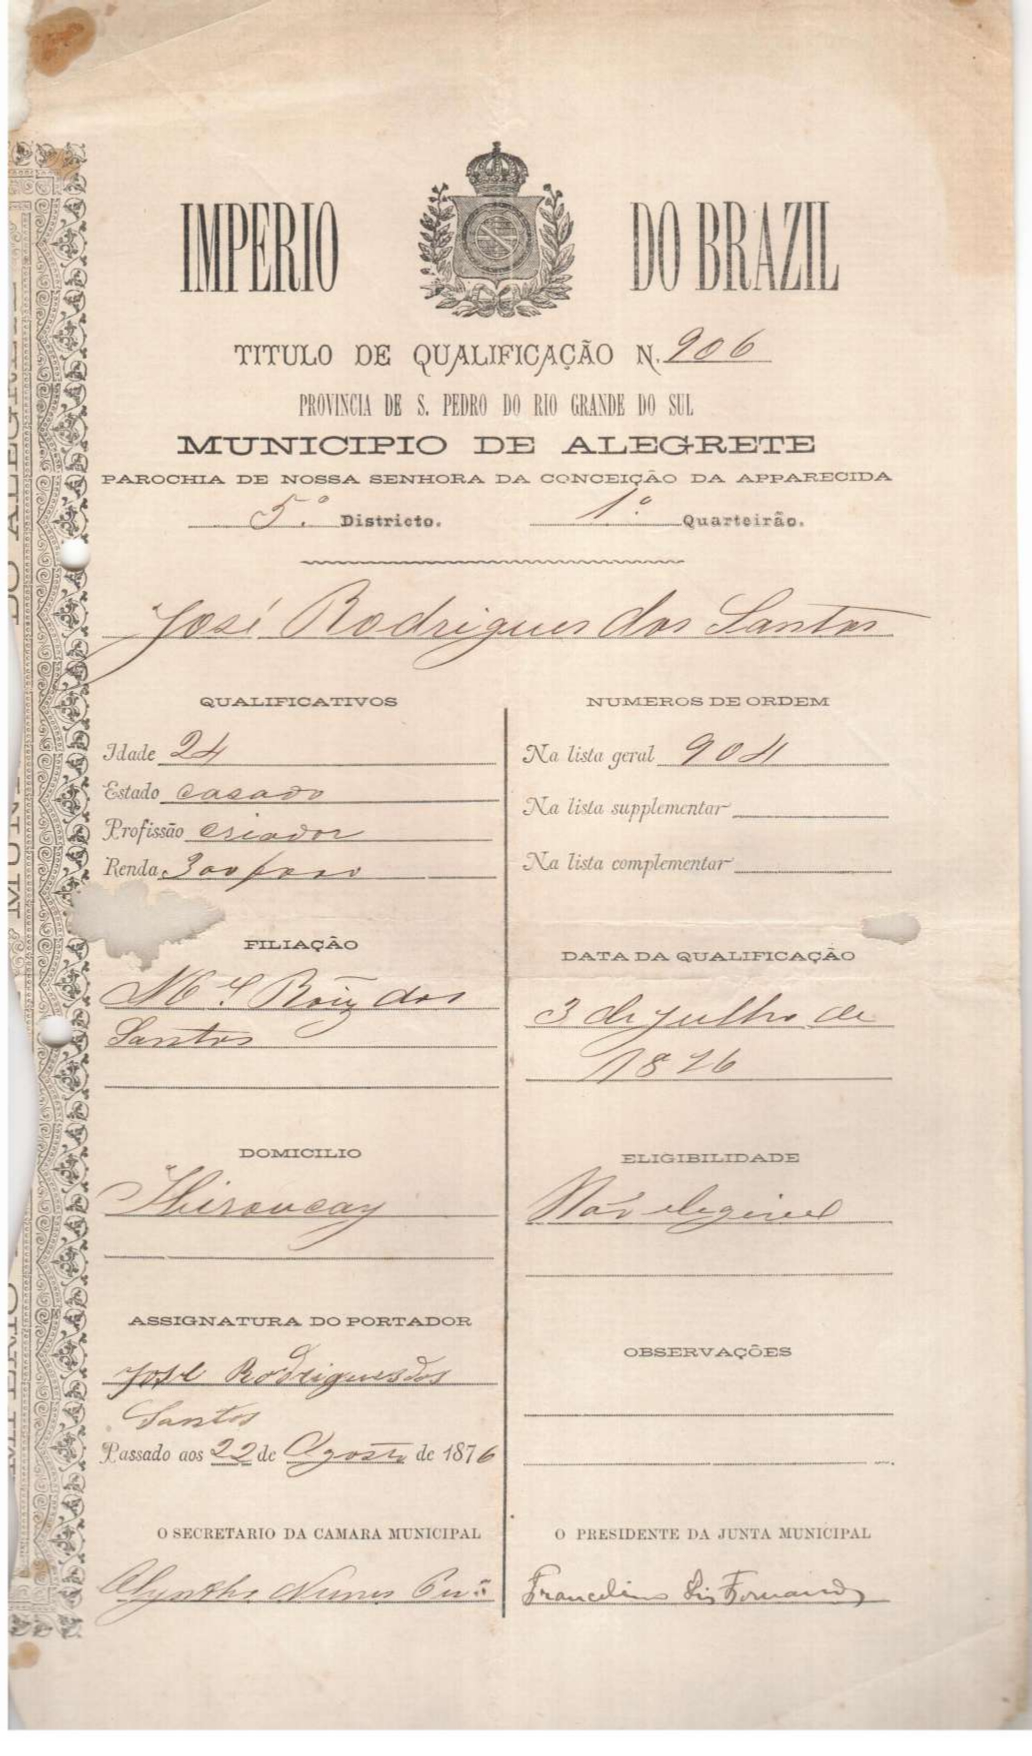 IMPERIO DO BRAZIL
TITULO DE QUALIFICAÇÃO N. 906
PROVINCIA DE S. PEDRO DO RIO GRANDE DO SUL
MUNICIPIO DE ALEGRETE
PAROCHIA DE NOSSA SENHORA DA CONCEIÇÃO DA APPARECIDA
5º Districto. 1º Quarteirão.
José Rodrigues dos Santos
QUALIFICATIVOS
Idade 24
Estado casado
Profissão criador
Renda
FILIAÇÃO
Mel Roiz dos
Santos
DOMICILIO
ASSIGNATURA DO PORTADOR
José Rodrigues dos
Santos
Passado aos 22 de Agosto de 1876
O SECRETARIO DA CAMARA MUNICIPAL
Nunes
NUMEROS DE ORDEM
Na lista geral 904
Na lista supplementar
Na lista complementar
DATA DA QUALIFICAÇÃO
3 de julho de
1876
ELIGIBILIDADE
Não elegivel
OBSERVAÇÕES
O PRESIDENTE DA JUNTA MUNICIPAL
Francelino